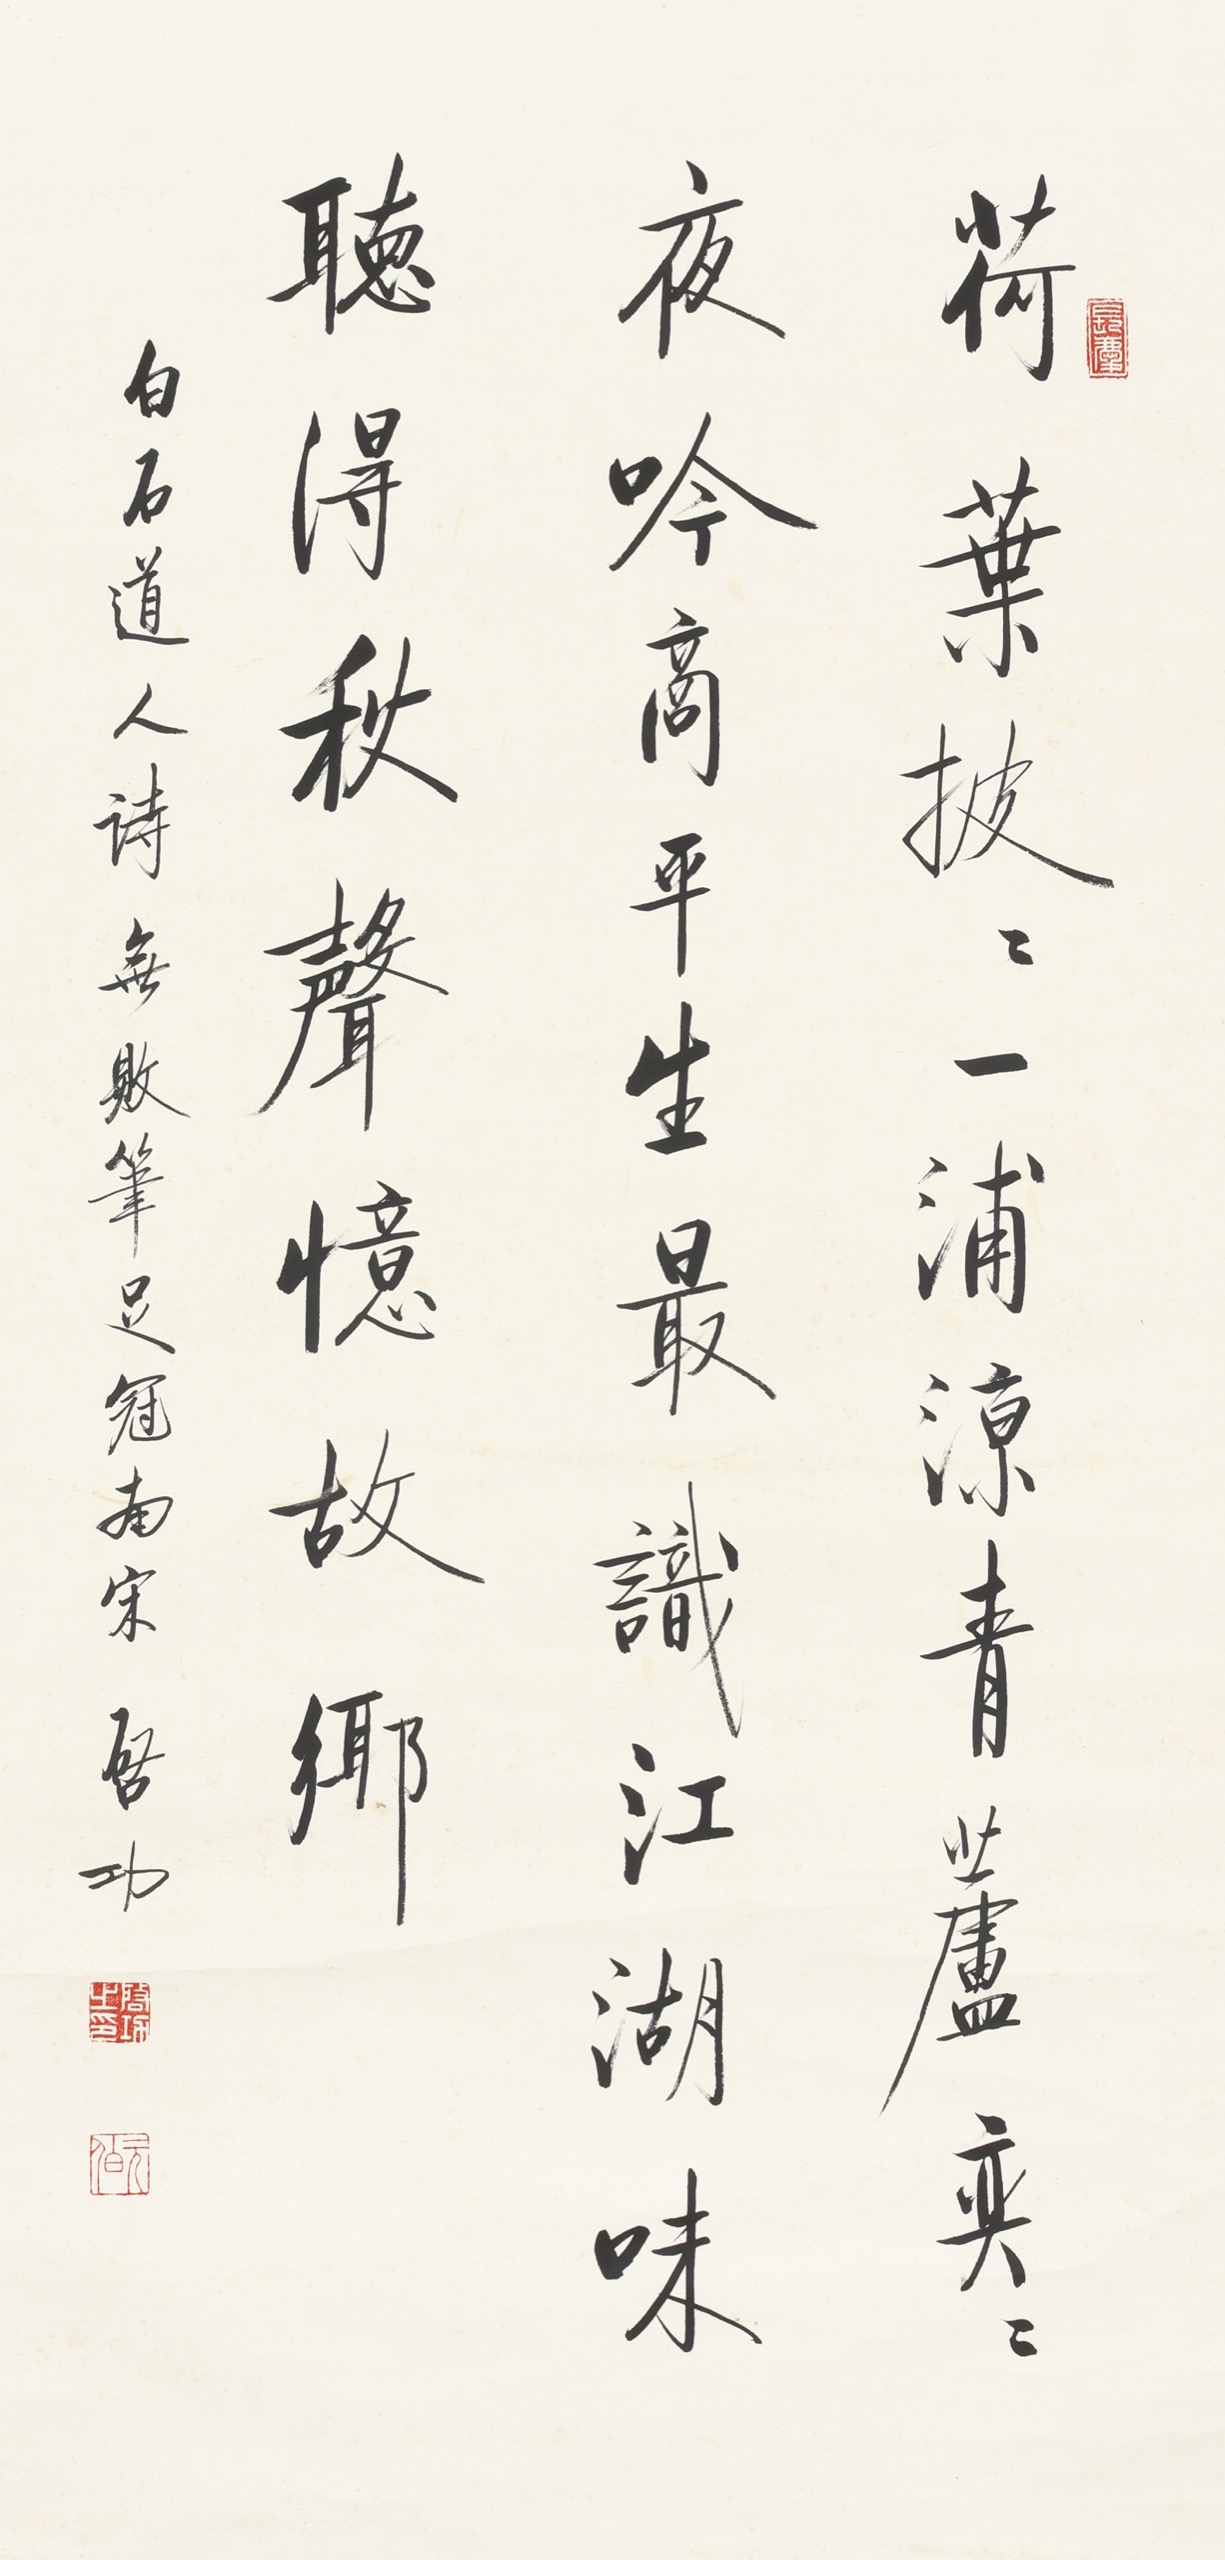 荷葉披〻一浦涼青蘆奕〻
夜吟商平生最識江湖味
聽得秋聲憶故鄉
白石道人詩無敗筆足冠南宋 啓功
啓功之印
元白